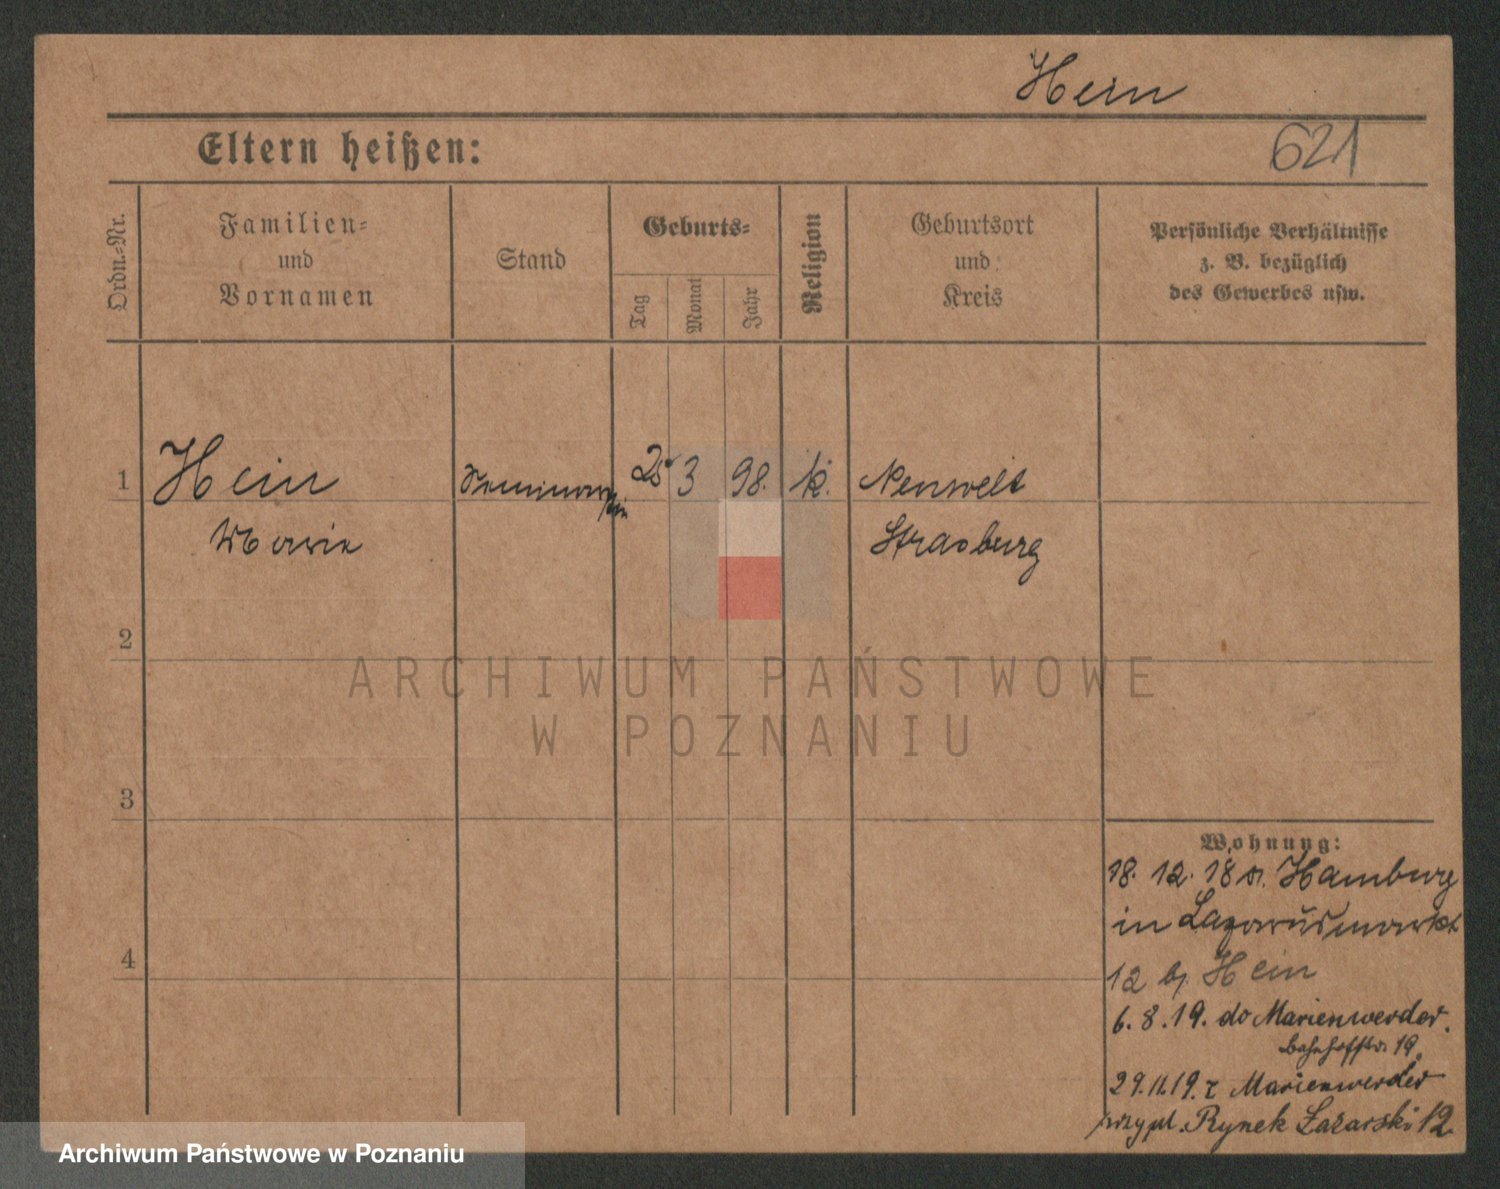 Hein
Eltern heißen:
621
Ordn.-Nr.
Familien-
und
Vornamen
Stand
Geburts-
Tag
Monat
Jahr
Religion
Geburtsort
und
Kreis
Persönliche Verhältnisse
z. B. bezüglich
des Gewerbes usw.
1 Hein 25 3 98. k. Neuwelt
Marie Strasburg
2
ARCHIWUM PAŃSTWOWE
W POZNANIU
3
Wohnung:
18. 12. 18 Hamburg
in Lazarusmarkt
12 b. Hein
4
6. 8. 19. do Marienwerder.
Bahnhofstr. 19.
29.11.19. z Marienwerder
Rynek Łazarski 12
Archiwum Państwowe w Poznaniu